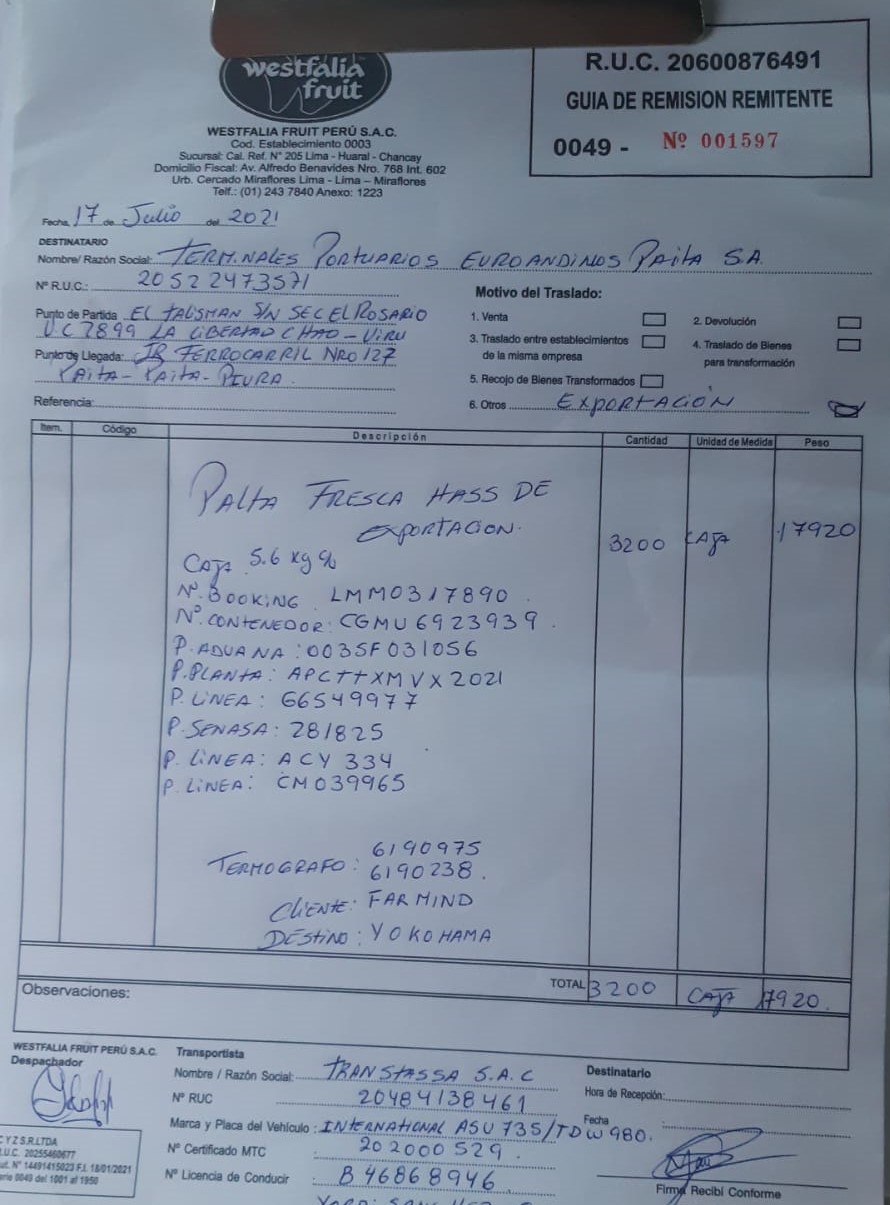 westfalia
fruit
WESTFALIA FRUIT PERÚ S.A.C.
Cod. Establecimiento 0003
Sucursal: Cal. Ref. N° 205 Lima - Huaral - Chancay
Domicilio Fiscal: Av. Alfredo Benavides Nro. 768 Int. 602
Urb. Cercado Miraflores Lima - Lima – Miraflores
Telf.: (01) 243 7840 Anexo: 1223
R.U.C. 20600876491
GUIA DE REMISION REMITENTE
0049 - Nº 001597
Fecha, 17 de Julio del 2021
DESTINATARIO
Nombre/ Razón Social: TERMINALES PORTUARIOS EUROANDINOS PAITA S.A.
N° R.U.C.: 20522473571
Punto de Partida EL TALISMAN S/N SEC EL ROSARIO
U.C 7899 LA LIBERTAD CHAO - VIRU
Punto de Llegada: JR FERROCARRIL NRO 127
PAITA - PAITA - PIURA.
Referencia:
Motivo del Traslado:
1. Venta
2. Devolución
3. Traslado entre establecimientos
de la misma empresa
4. Traslado de Bienes
para transformación
5. Recojo de Bienes Transformados
6. Otros EXPORTACIÓN
Item. Código Descripción Cantidad Unidad de Medida Peso
PALTA FRESCA HASS DE
EXPORTACION. 3200 CAJA 17920
CAJA 5.6 Kg
Nº. BOOKING LMM0317890
Nº. CONTENEDOR: CGMU6923939.
P. ADUANA: 0035F031056
P. PLANTA: APCTTXMVX2021
P. LINEA: 66549977
P. SENASA: 281825
P. LINEA: ACY 334
P. LINEA: CM039965
6190975
TERMOGRAFO: 6190238.
CLIENTE: FARMIND
DESTINO: YOKOHAMA
TOTAL 3200 CAJA 17920.
Observaciones:
WESTFALIA FRUIT PERÚ S.A.C.
Despachador
Transportista
Nombre / Razón Social: TRANSTASSA S.A.C
N° RUC 20484138461
Marca y Placa del Vehículo: INTERNATIONAL ASU 735/TDW980.
N° Certificado MTC : 202000529.
N° Licencia de Conducir : B46868946
Destinatario
Hora de Recepción:
Fecha
Firma Recibí Conforme
CYZ S.R.LTDA
U.C. 20255460677
ut. N° 14491415023 F.I. 18/01/2021
erie 0049 del 1001 al 1950